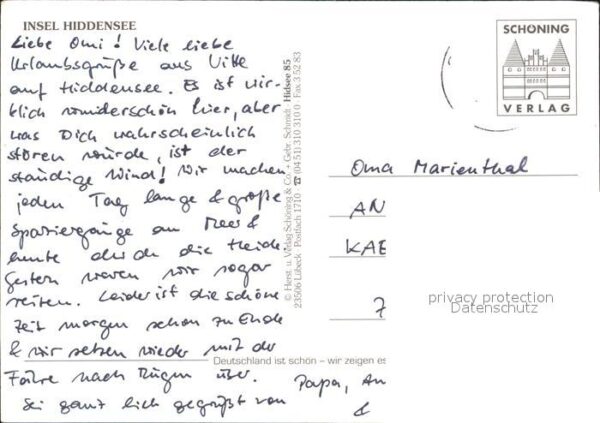 INSEL HIDDENSEE
Liebe Omi! Viele liebe
Urlaubsgrüße aus Vitte
auf Hiddensee. Es ist wir-
klich wunderschön hier, aber
was Dich wahrscheinlich
stören würde, ist der
ständige Wind! Wir machen
jeden Tag lange & große
Spaziergänge am Meer &
heute durch die Heide.
Gestern waren wir sogar
reiten. Leider ist die schöne
Zeit morgen schon zu Ende
& wir setzen wieder mit der
Fähre nach Rügen über.
Sei ganz lieb gegrüßt von Papa, An
&
© Herst. u. Verlag Schöning & Co. + Gebr. Schmidt · Hidsee 85
23506 Lübeck · Postfach 1710 · ☎ (04 51) 310 310 0 · Fax 3 52 83
SCHÖNING
VERLAG
Oma Marienthal
AN
KAE
7
privacy protection
Datenschutz
Deutschland ist schön – wir zeigen es